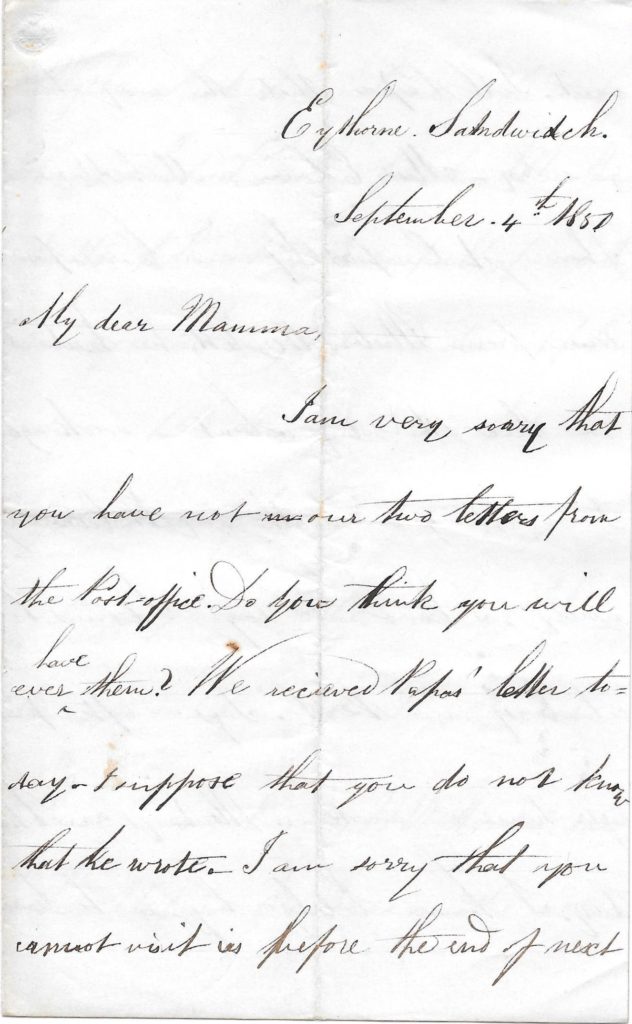 Eythorne. Sandwich.
September. 4th. 1850
My dear Mamma,
I am very soary that
you have not our two letters from
the Post-office. Do you think you will
have
ever them? We recieved Papas' letter to=
day - I suppose that you do not know
that he wrote. I am sorry that you
cannot visit us before the end of next